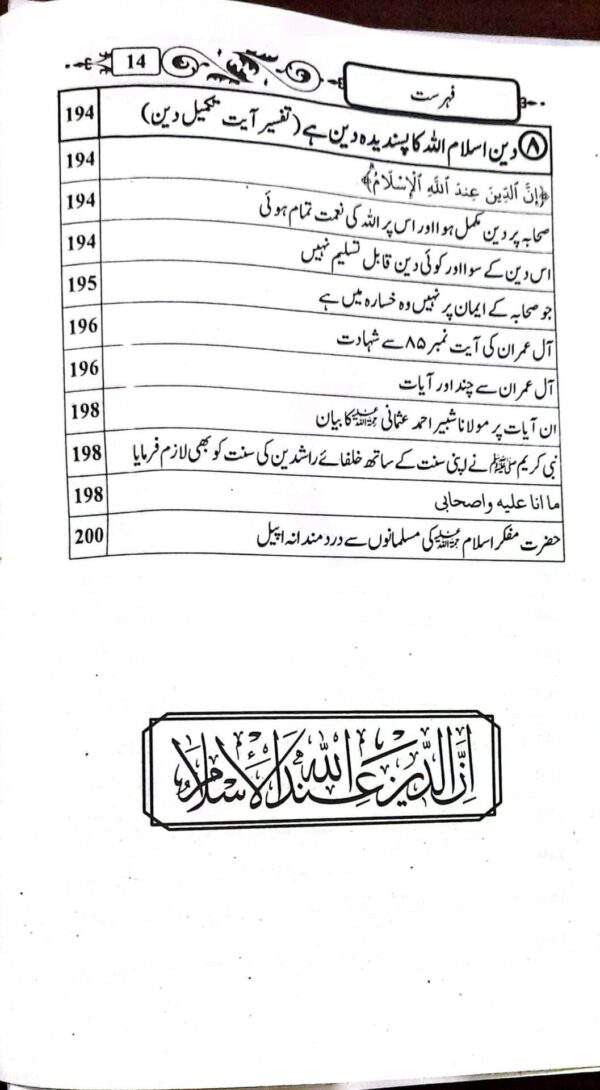 فہرست
14
۸ دین اسلام اللہ کا پسندیدہ دین ہے (تفسیر آیت تکمیل دین) 194
﴿إِنَّ ٱلدِّينَ عِندَ ٱللَّهِ ٱلْإِسْلَامُ﴾ 194
صحابہ پر دین مکمل ہوا اور اس پر اللہ کی نعمت تمام ہوئی 194
اس دین کے سوا اور کوئی دین قابل تسلیم نہیں 194
جو صحابہ کے ایمان پر نہیں وہ خسارہ میں ہے 195
آل عمران کی آیت نمبر ۸۵ سے شہادت 196
آل عمران سے چند اور آیات 196
ان آیات پر مولانا شبیر احمد عثمانی رحمۃ اللہ علیہ کا بیان 198
نبی کریم ﷺ نے اپنی سنت کے ساتھ خلفائے راشدین کی سنت کو بھی لازم فرمایا 198
ما انا علیه واصحابی 198
حضرت مفکر اسلام رحمۃ اللہ علیہ کی مسلمانوں سے دردمندانہ اپیل 200
اِنَّ الدِّينَ عِندَ اللهِ الْإِسْلَامُ